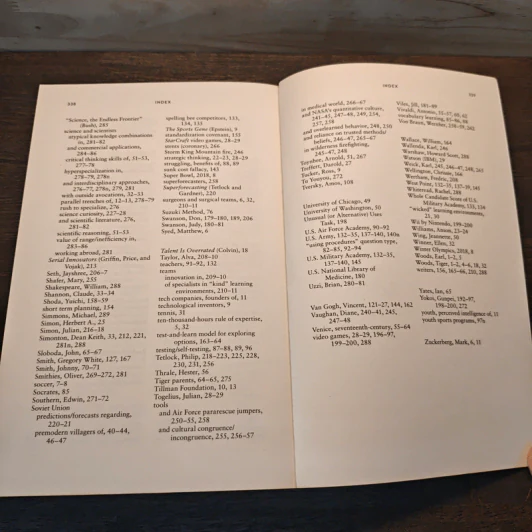 338
INDEX
"Science, the Endless Frontier"
(Bush), 285
science and scientists
atypical knowledge combinations
in, 281–82
and communicating applications,
284–86
critical thinking skills of, 51–53,
277–78
hyperspecialization in,
278–79, 278n
and interdisciplinary approaches,
276–77, 276n, 279, 281
with outside avocations, 32–33
parallel trenches of, 12–13, 278–79
rush to specialize, 276
science curiosity, 227–28
and scientific literature, 276,
281–82
scientific reasoning, 51–53
value of range/inefficiency in,
285–86
working abroad, 281
Serial Innovators (Griffin, Price, and
Vojak), 213
Seth, Jayshree, 206–7
Shafer, Mary, 255
Shakespeare, William, 288
Shannon, Claude, 33–34
Shoda, Yuichi, 158–59
short term planning, 154
Simmons, Michael, 289
Simon, Herbert A., 25
Simon, Julian, 216–18
Simonton, Dean Keith, 33, 212, 221,
281n, 288
Sloboda, John, 63–67
Smith, Gregory White, 127, 167
Smith, Johnny, 70–71
Smithies, Oliver, 269–272, 281
soccer, 7–8
Socrates, 85
Southern, Edwin, 271–72
Soviet Union
predictions/forecasts regarding,
220–21
premodern villagers of, 40–44,
46–47
spelling bee competitors, 133,
134, 135
The Sports Gene (Epstein), 9
standardization covenant, 155
StarCraft video games, 28–29
Storm King Mountain fire, 246
strategic thinking, 22–23, 28–29
struggling, benefits of, 88, 89
sunk cost fallacy, 143
Super Bowl, 2018, 8
superforecasters, 258
Superforecasting (Tetlock and
Gardner), 220
surgeons and surgical teams, 6, 32,
210–11
Suzuki Method, 76
Swanson, Don, 179–180, 189, 206
Swanson, Judy, 180–81
Syed, Matthew, 6
Talent Is Overrated (Colvin), 18
Taylor, Alva, 208–10
teachers, 91–92, 132
teams
innovation in, 209–10
of specialists in "kind" learning
environments, 210–11
tech companies, founders of, 11
technological inventors, 9
tennis, 31
ten-thousand-hours rule of expertise,
5, 32
test-and-learn model for exploring
options, 163–64
testing/self-testing, 87–88, 89, 96
Tetlock, Philip, 218–223, 225, 228,
230, 231, 256
Thrale, Hester, 56
Tiger parents, 64–65, 275
Tillman Foundation, 10, 13
Togelius, Julian, 28–29
tools
and Air Force pararescue jumpers,
250–55, 258
and cultural congruence/
incongruence, 255, 256–57
INDEX
339
in medical world, 266–67
and NASA's quantitative culture,
241–45, 247–48, 249, 254,
257, 258
and overlearned behavior, 248, 250
and reliance on trusted methods/
beliefs, 246–47, 265–67
in wilderness firefighting,
245–47, 248
Toynbee, Arnold, 31, 267
Treffert, Darold, 27
Tucker, Ross, 9
Tu Youyou, 272
Tversky, Amos, 108
University of Chicago, 49
University of Washington, 50
Unusual (or Alternative) Uses
Task, 198
U.S. Air Force Academy, 90–92
"using procedures" question type,
82–85, 92–94
U.S. Military Academy, 132–35,
137–140, 145
U.S. National Library of
Medicine, 180
Uzzi, Brian, 280–81
Van Gogh, Vincent, 121–27, 144, 162
Vaughan, Diane, 240–41, 245,
247–48
Venice, seventeenth-century, 55–64
video games, 28–29, 196–97,
199–200, 288
Vilas, Jill, 181–89
Vivaldi, Antonio, 55–57, 60, 62
vocabulary learning, 85–86, 88
Von Braun, Wernher, 238–39, 262
Wallace, William, 164
Wallenda, Karl, 246
Warshaw, Howard Scott, 288
Watson (IBM), 29
Weick, Karl, 245, 246–47, 248, 265
Wellington, Christen, 166
Wertham, Fredric, 208
West Point, 132–35, 137–39, 145
Whitestall, Rachel, 288
Whole Candidate Score of U.S.
Military Academy, 133, 134
"wicked" learning environments,
21, 30
Wii by Nintendo, 199–200
Williams, Anson, 25–26
Wing, Jeannette, 50
Winner, Ellen, 32
Winter Olympics, 2018, 8
Woods, Earl, 1–2, 5
Woods, Tiger, 1–2, 4–6, 18, 32
writers, 156, 165–66, 210, 288
Yates, Ian, 65
Yokoi, Gunpei, 192–97,
198–200, 272
youth, perceived intelligence of, 11
youth sports programs, 97n
Zuckerberg, Mark, 6, 11